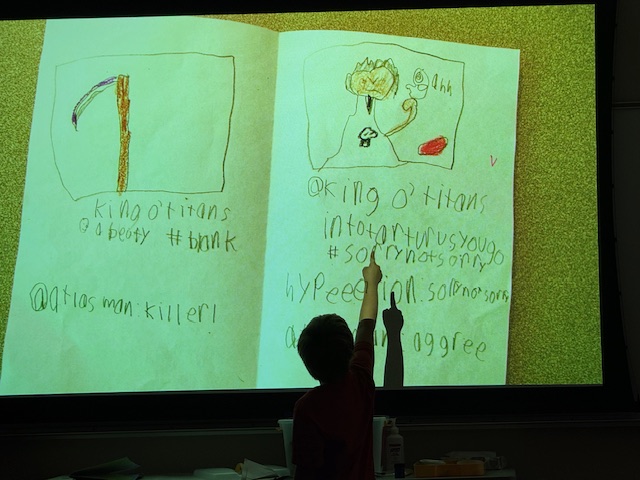 king o' titans
@ a beaty #bank
@atlas man: killer!
ahh
@king o' titans
intotarturusyougo
#sorrynotsorry
hypeeerion: sorrynotsorry
aggree